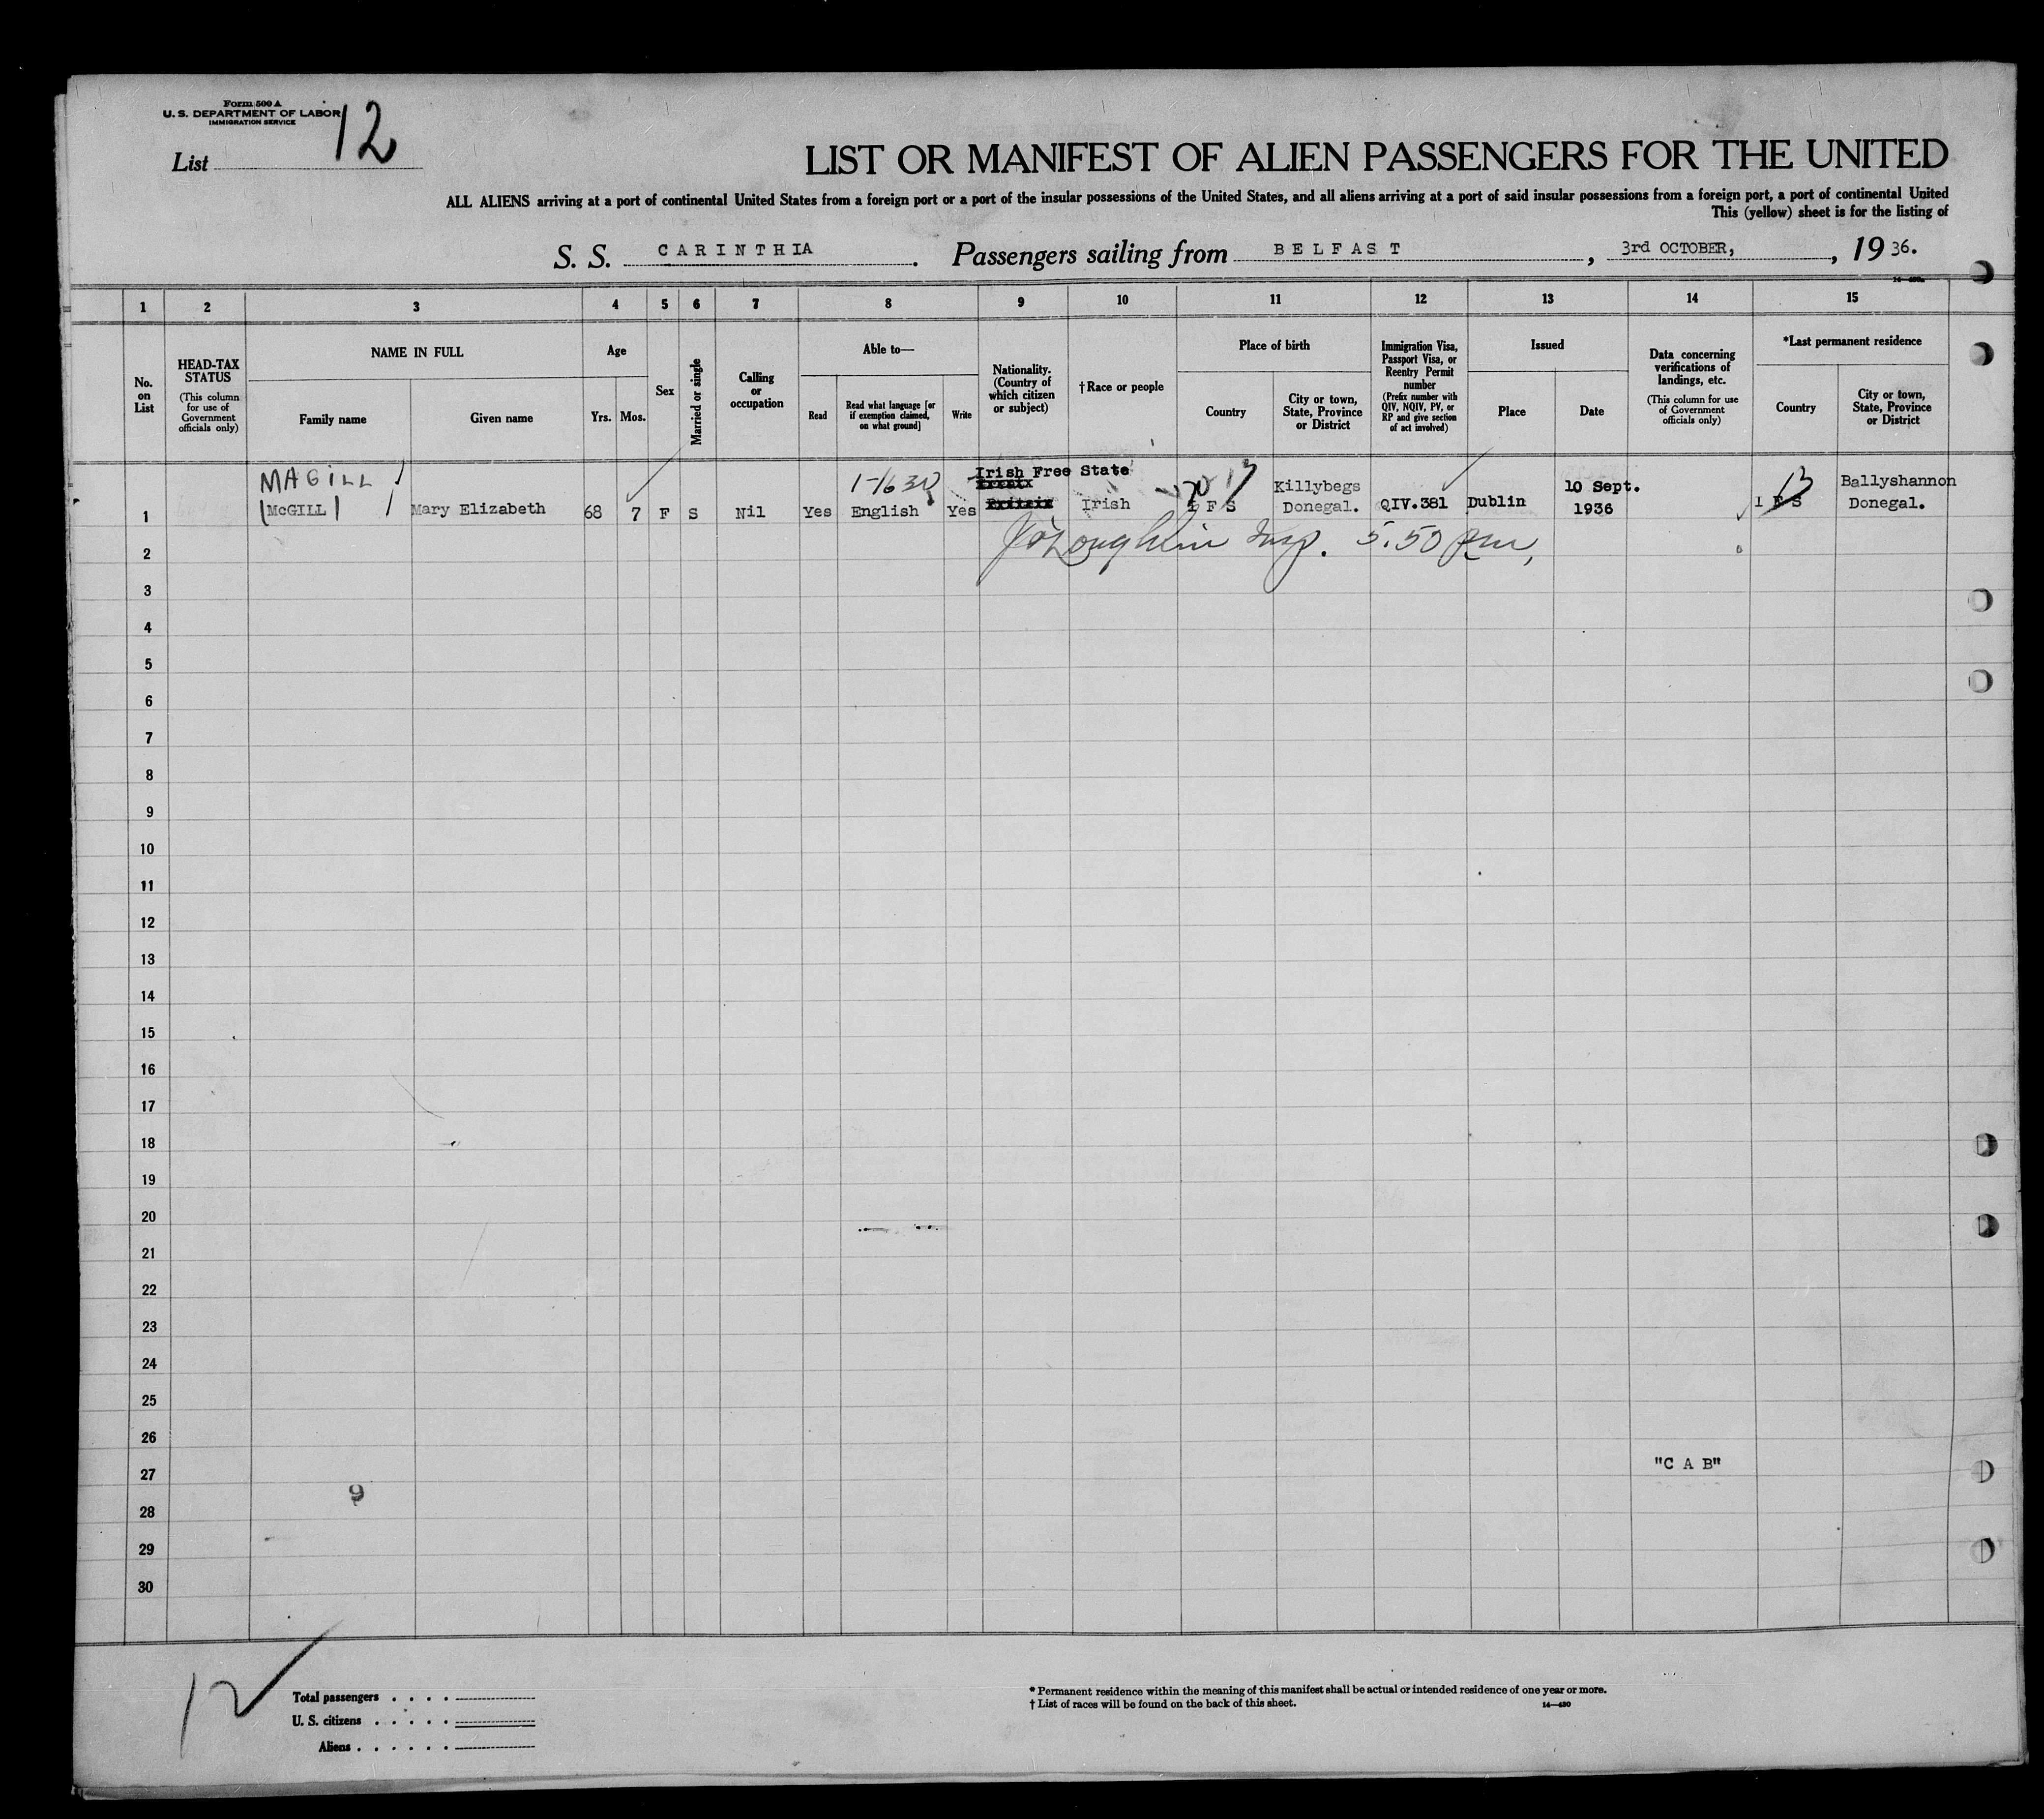 Form 500 A
U. S. DEPARTMENT OF LABOR
IMMIGRATION SERVICE
List 12
LIST OR MANIFEST OF ALIEN PASSENGERS FOR THE UNITED
ALL ALIENS arriving at a port of continental United States from a foreign port or a port of the insular possessions of the United States, and all aliens arriving at a port of said insular possessions from a foreign port, a port of continental United
This (yellow) sheet is for the listing of
S. S. CARINTHIA. Passengers sailing from BELFAST, 3rd OCTOBER, , 19 36.
1 2 3 4 5 6 7 8 9 10 11 12 13 14 15
No. on List
HEAD-TAX STATUS
(This column for use of Government officials only)
NAME IN FULL
Family name
Given name
Age
Yrs.
Mos.
Sex
Married or single
Calling or occupation
Able to—
Read
Read what language [or if exemption claimed, on what ground]
Write
Nationality. (Country of which citizen or subject)
†Race or people
Place of birth
Country
City or town, State, Province or District
Immigration Visa, Passport Visa, or Reentry Permit number
(Prefix number with QIV, NQIV, PV, or RP and give section of act involved)
Issued
Place
Date
Data concerning verifications of landings, etc.
(This column for use of Government officials only)
*Last permanent residence
Country
City or town, State, Province or District
MAGILL 1-1630 Irish Free State 13 Killybegs 10 Sept. 13 Ballyshannon
1 McGILL Mary Elizabeth 68 7 F S Nil Yes English Yes Irish I F S Donegal. QIV.381 Dublin 1936 I F S Donegal.
2 J O'Loughlin Insp. 5.50 pm,
3
4
5
6
7
8
9
10
11
12
13
14
15
16
17
18
19
20
21
22
23
24
25
26
27 "C A B"
9
28
29
30
12
Total passengers . . . .
U. S. citizens . . . . .
Aliens . . . . . .
* Permanent residence within the meaning of this manifest shall be actual or intended residence of one year or more.
† List of races will be found on the back of this sheet.
14—430